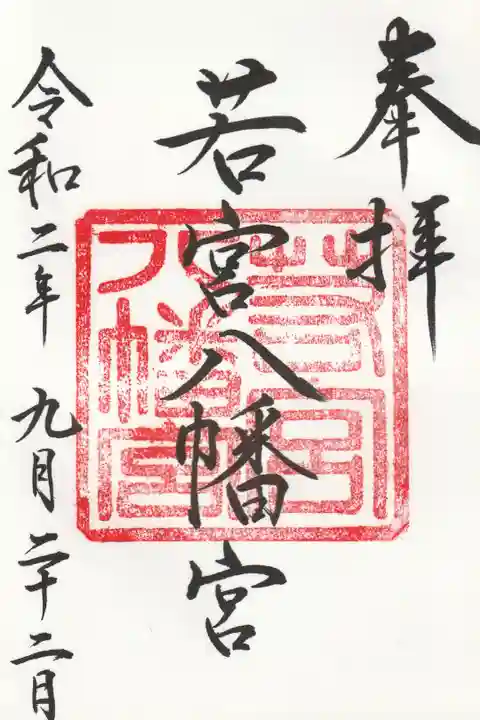 奉拝
若宮八幡宮
若宮八幡宮
令和二年 九月二十二日